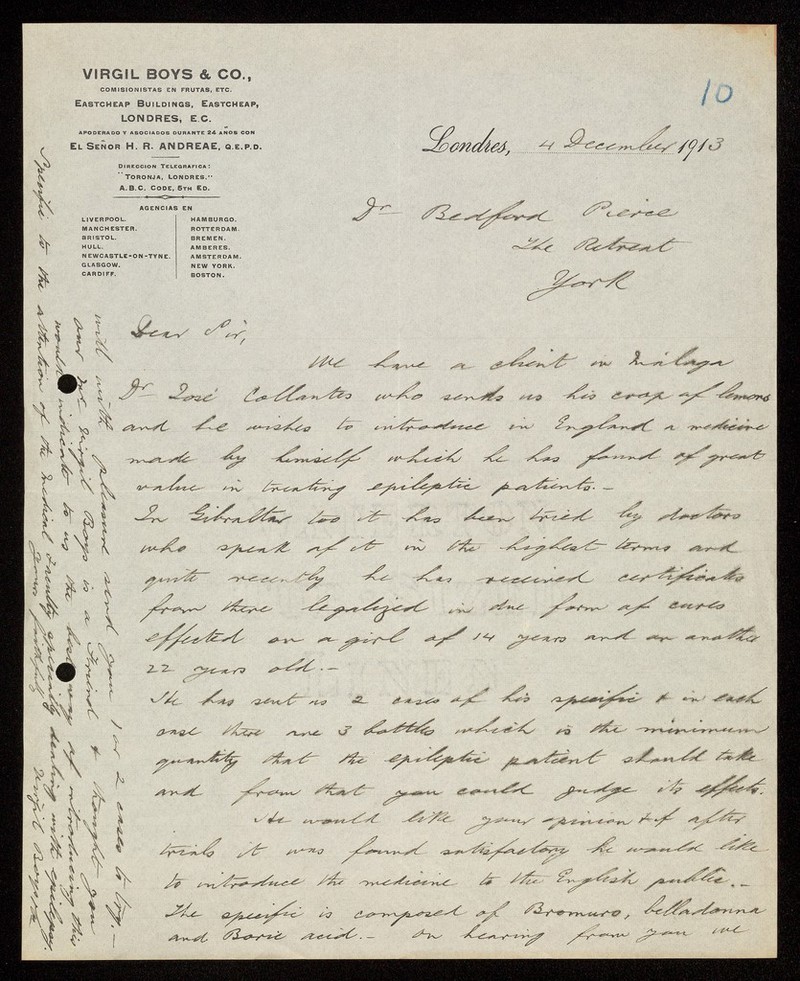 VIRGIL BOYS & CO.,
COMISIONISTAS EN FRUTAS, ETC.
EASTCHEAP BUILDINGS, EASTCHEAP,
LONDRES, E.C.
APODERADO Y ASOCIADOS DURANTE 24 AÑOS CON
EL SEÑOR H. R. ANDREAE, Q.E.P.D.
DIRECCION TELEGRAFICA:
"TORONJA, LONDRES."
A.B.C. CODE, 5TH ED.
AGENCIAS EN
LIVERPOOL.
MANCHESTER.
BRISTOL.
HULL.
NEWCASTLE-ON-TYNE.
GLASGOW.
CARDIFF.
HAMBURGO.
ROTTERDAM.
BREMEN.
AMBERES.
AMSTERDAM.
NEW YORK.
BOSTON.
10
Londres, 4 December 1913
Dr Bedford Pierce
The Retreat
York
Dear Sir,
We have a client in Málaga
Dr José Collantes who sends us his crop of lemons
and he wishes to introduce in England a medicine
made by himself which he has found of great
value in treating epileptic patients.-
In Gibraltar too it has been tried by doctors
who speak of it in the highest terms and
quite recently he has received certificates
from there legalized in due form of cures
effected on a girl of 14 years and on another
22 years old.-
He has sent us 2 cases of his specific & in each
case there are 3 bottles which is the minimum
quantity that the epileptic patient should take
and from that you could judge its effects.
He would like your opinion & if after
trials it was found satisfactory he would like
to introduce the medicine to the English public.-
The specific is composed of Bromuro, belladonna
and Boric acid.- On hearing from you we
will with pleasure send you 1 or 2 cases to try.-
our Mr Virgil Boys is a Friend & thought you
would indicate to us the best way of introducing this
specific to the attention of the Medical Faculty specially dealing with epilepsy.
Yours faithfully
Virgil Boys & Co